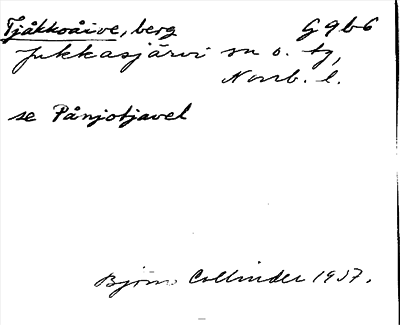 Tjåkkoåive, berg G9b6
Jukkasjärvi sn o. tg,
Norrb. l.
se Pånjotjavel
Björn Collinder 1937.